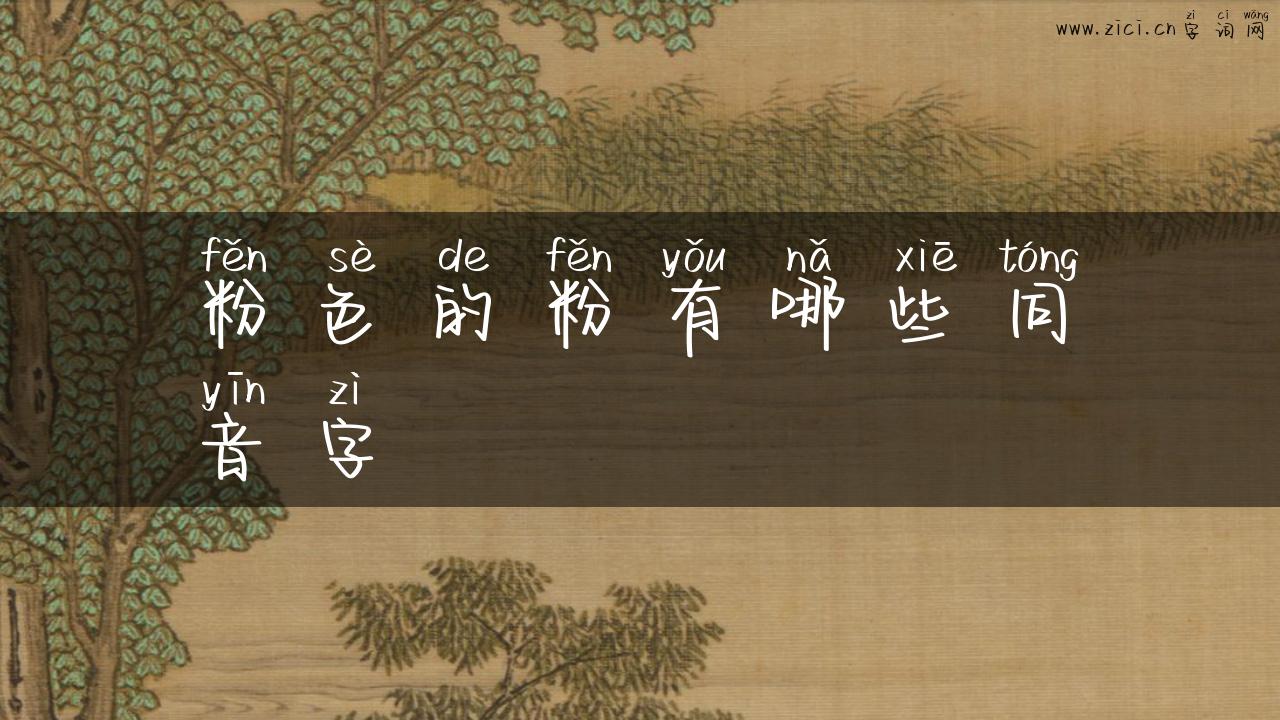 zì cí wǎng
www.zici.cn 字词网
fěn sè de fěn yǒu nǎ xiē tóng
粉色的粉有哪些同
yīn zì
音字